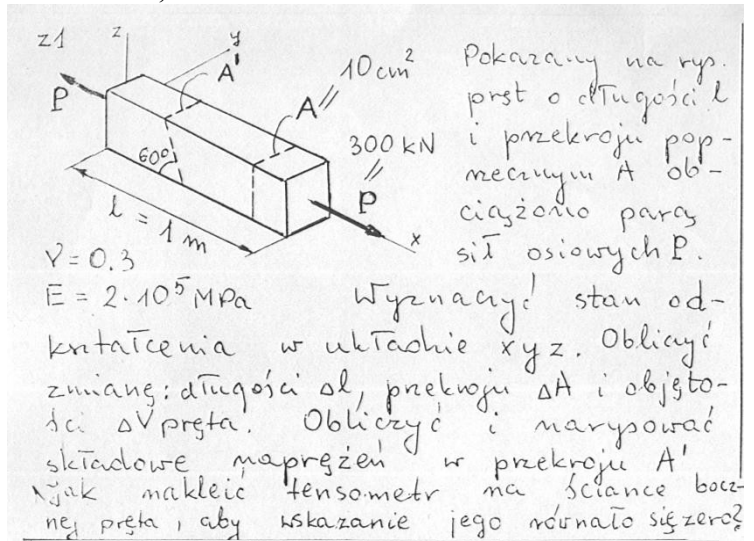 z1
z
y
A'
A // 10 cm²
P
60°
300 kN
//
P
l = 1 m
x
ν = 0.3
E = 2·10⁵ MPa
Pokazany na rys.
pręt o długości l
i przekroju pop-
rzecznym A ob-
ciążono parą
sił osiowych P.
Wyznaczyć stan od-
kształcenia w układzie xyz. Obliczyć
zmianę: długości Δl, przekroju ΔA i objęto-
ści ΔV pręta. Obliczyć i narysować
składowe naprężeń w przekroju A'
Jak nakleić tensometr na ściance bocz-
nej pręta, aby wskazanie jego równało się zero?